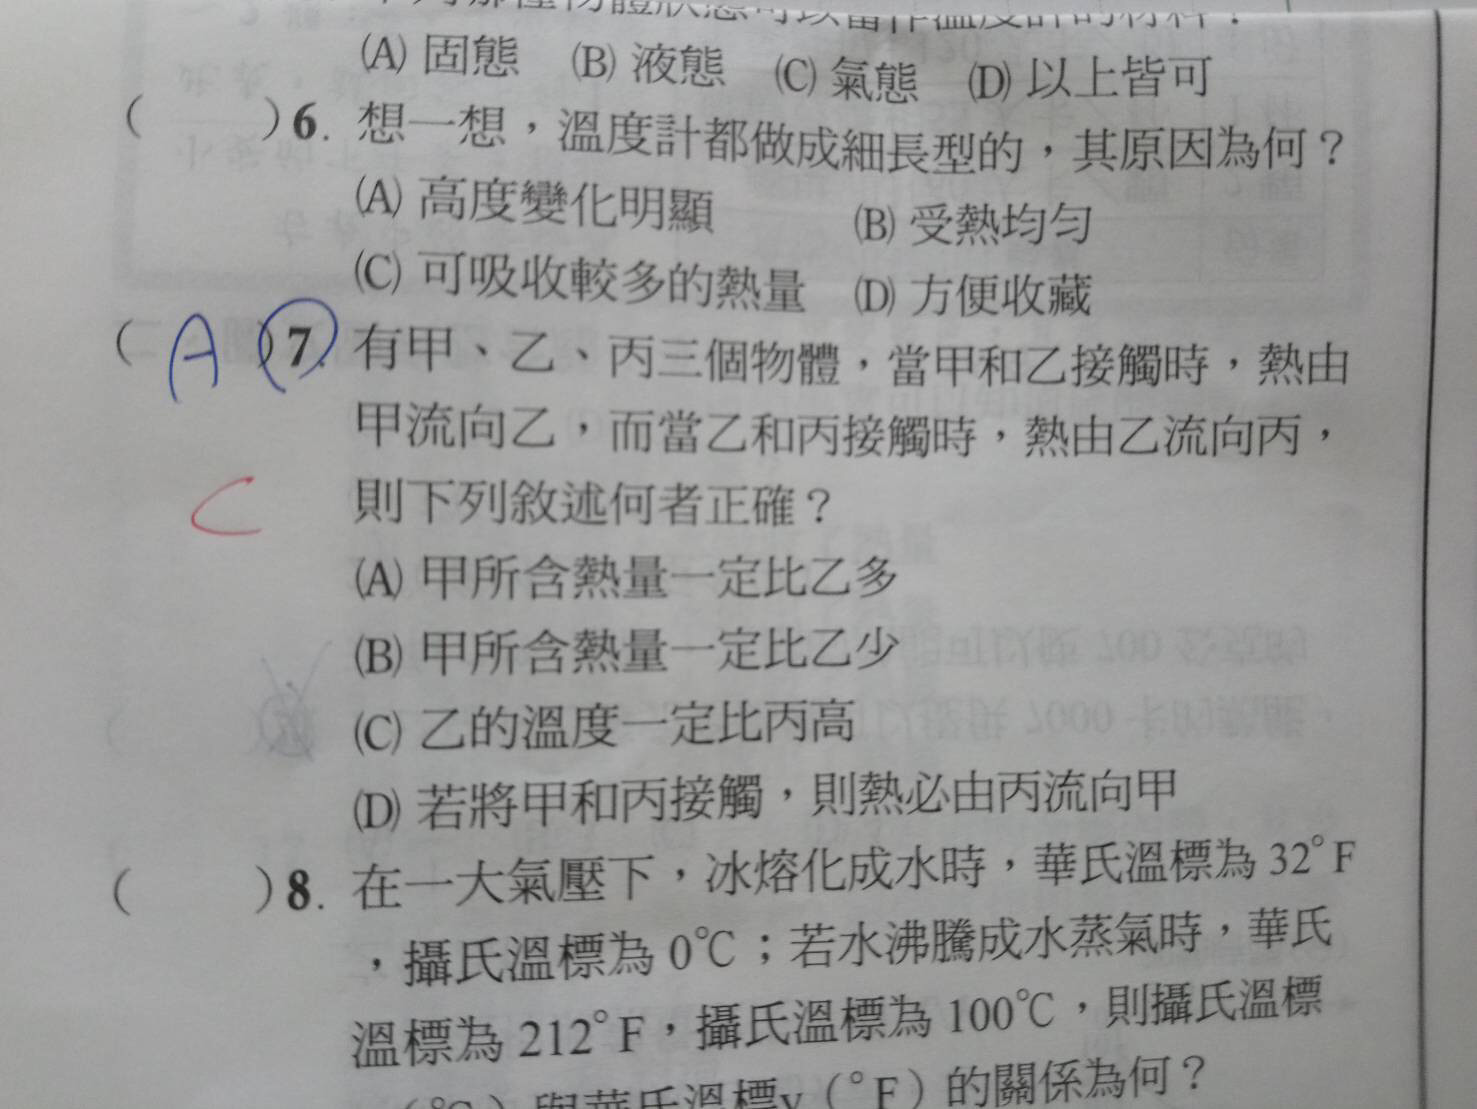 (A) 固態 (B) 液態 (C) 氣態 (D) 以上皆可
( )6. 想一想，溫度計都做成細長型的，其原因為何？
(A) 高度變化明顯 (B) 受熱均勻
(C) 可吸收較多的熱量 (D) 方便收藏
( A )7. 有甲、乙、丙三個物體，當甲和乙接觸時，熱由
甲流向乙，而當乙和丙接觸時，熱由乙流向丙，
C 則下列敘述何者正確？
(A) 甲所含熱量一定比乙多
(B) 甲所含熱量一定比乙少
(C) 乙的溫度一定比丙高
(D) 若將甲和丙接觸，則熱必由丙流向甲
( )8. 在一大氣壓下，冰熔化成水時，華氏溫標為 32°F
，攝氏溫標為 0℃；若水沸騰成水蒸氣時，華氏
溫標為 212°F，攝氏溫標為 100℃，則攝氏溫標
(°C) 與華氏溫標y (°F) 的關係為何？